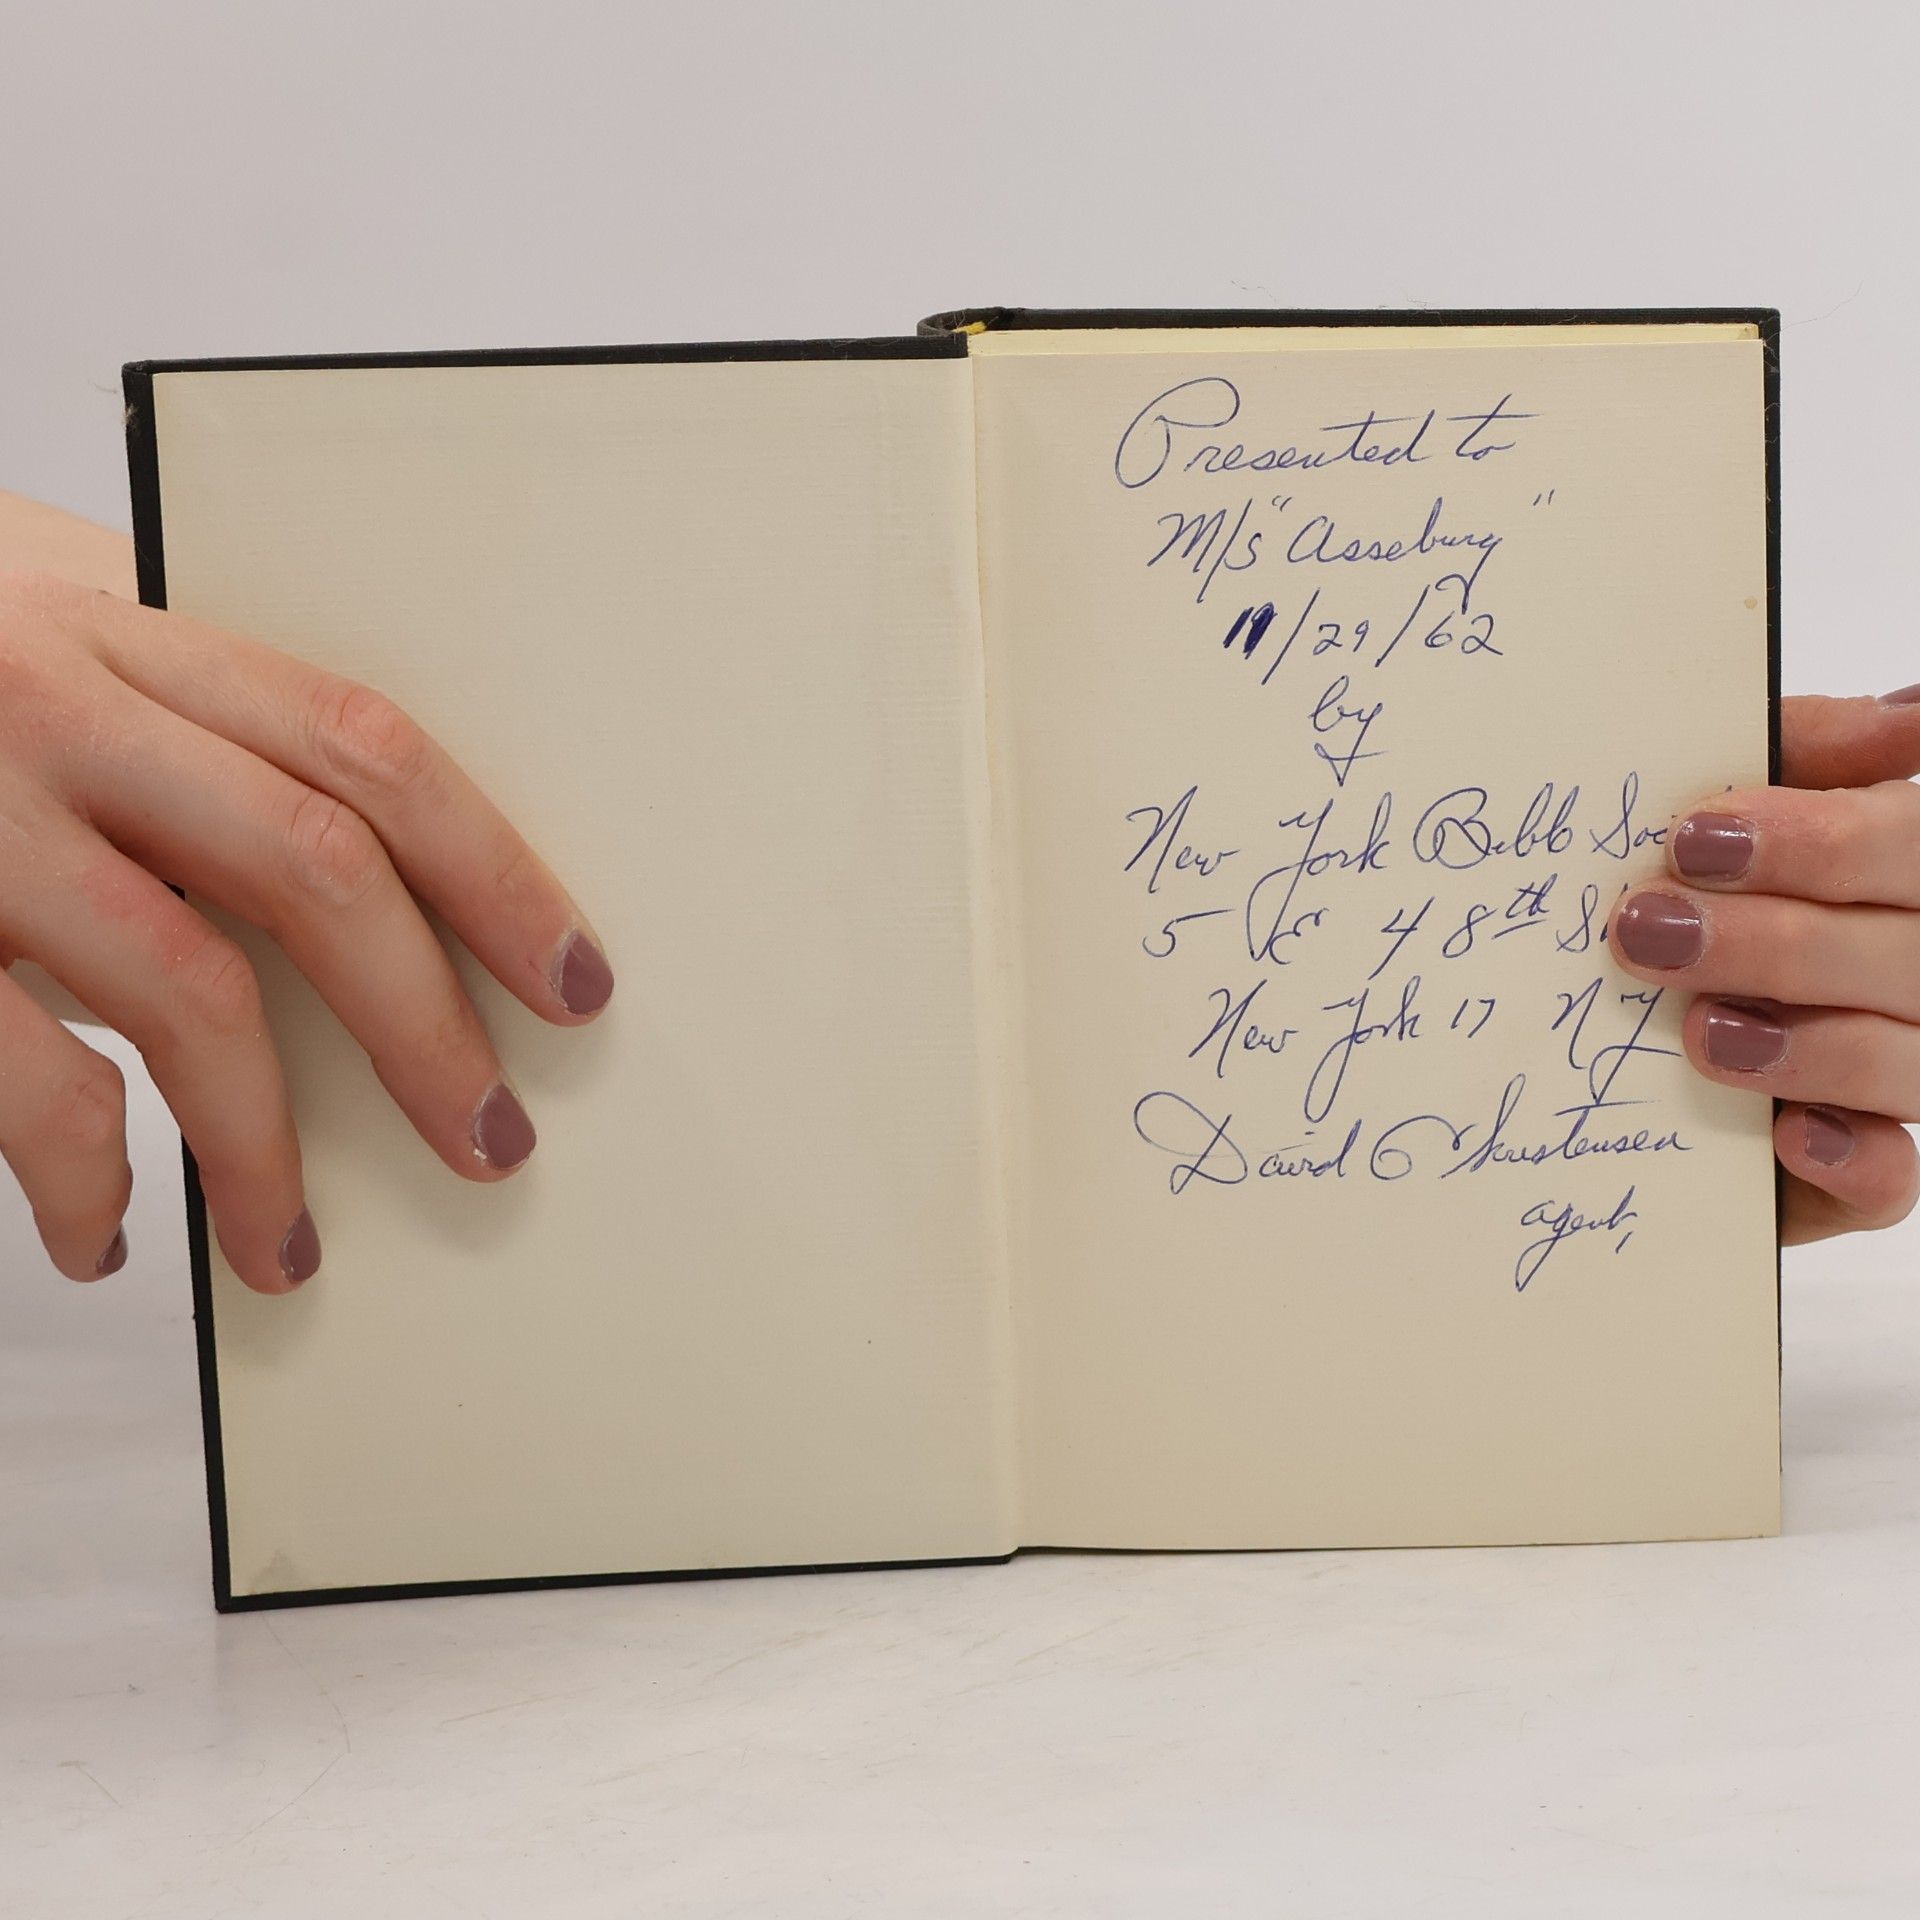 Presented to
M/S "Assebury"
11/29/62
by
New York Bible Soci
5 E 48th St
New York 17 N Y
David Christensen
agent,